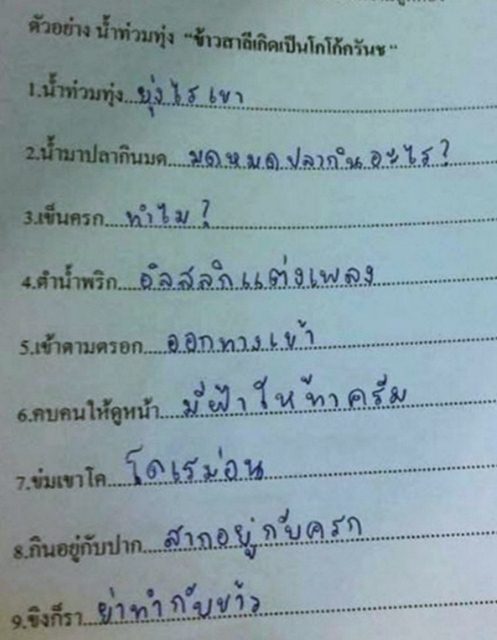 ตัวอย่าง น้ำท่วมทุ่ง "ข้าวสาลีเกิดเป็นโกโก้ครันช"
1.น้ำท่วมทุ่ง...ยุ่งไรเขา
2.น้ำมาปลากินมด...มดหมดปลากินอะไร?
3.เข็นครก...ทำไม?
4.ตำน้ำพริก...อิสสลิกแต่งเพลง
5.เข้าตามตรอก...ออกทางเข้า
6.คบคนให้ดูหน้า...มีฝ้าให้ทาครีม
7.ข่มเขาโค...โดเรม่อน
8.กินอยู่กับปาก...สากอยู่กับครก
9.ขิงก็รา...ย่าทำกับข้าว